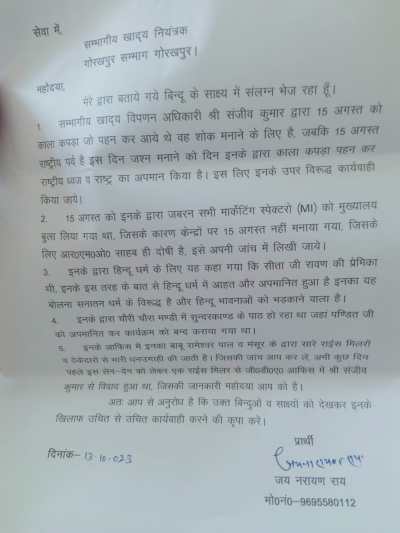 सेवा में,
सम्भागीय खाद्य नियंत्रक
गोरखपुर सम्भाग गोरखपुर।
महोदया,
मेरे द्वारा बताये गये बिन्दू के साक्ष्य में संलग्न भेज रहा हूँ।
1. सम्भागीय खाद्य विपणन अधिकारी श्री संजीव कुमार द्वारा 15 अगस्त को
काला कपड़ा जो पहन कर आये थे वह शोक मनाने के लिए है, जबकि 15 अगस्त
राष्ट्रीय पर्व है इस दिन जश्न मनाने को दिन इनके द्वारा काला कपड़ा पहन कर
राष्ट्रीय ध्वज व राष्ट्र का अपमान किया है। इस लिए इनके उपर विरूद्ध कार्यवाही
किया जाये।
2. 15 अगस्त को इनके द्वारा जबरन सभी मार्केटिंग स्पेक्टरो (MI) को मुख्यालय
बुला लिया गया था, जिसके कारण केन्द्रों पर 15 अगस्त नहीं मनाया गया, जिसके
लिए आर0एम0ओ0 साहब ही दोषी है, इसे अपनी जांच में लिखी जाये।
3. इनके द्वारा हिन्दू धर्म के लिए यह कहा गया कि सीता जी रावण की प्रेमिका
थी, इनके इस तरह के बात से हिन्दू धर्म में आहत और अपमानित हुआ है इनका यह
बोलना सनातन धर्म के विरूद्ध है और हिन्दू भावनाओं को भड़काने वाला है।
4. इनके द्वारा चौरी चौरा मण्डी में सुन्दरकाण्ड के पाठ हो रहा था जहां पण्डित जी
को अपमानित कर कार्यक्रम को बन्द कराया गया था।
5. इनके आफिस में इनका बाबू रामेश्वर पाल व मंसूर के द्वारा सारे राईस मिलरों
व ठेकेदारो से भारी धनउगाही की जाती है। जिसकी जांच आप कर लें, अभी कुछ दिन
पहले इस लेन-देन को लेकर एक राईस मिलर से जी0डी0ए0 आफिस में श्री संजीव
कुमार से विवाद हुआ था, जिसकी जानकारी महोदया आप को है।
अतः आप से अनुरोध है कि उक्त बिन्दुओं व साक्ष्यों को देखकर इनके
खिलाफ उचित से उचित कार्यवाही करने की कृपा करे।
प्रार्थी
दिनांक– 13-10-023
जय नारायण राय
मो0नं0–9695580112